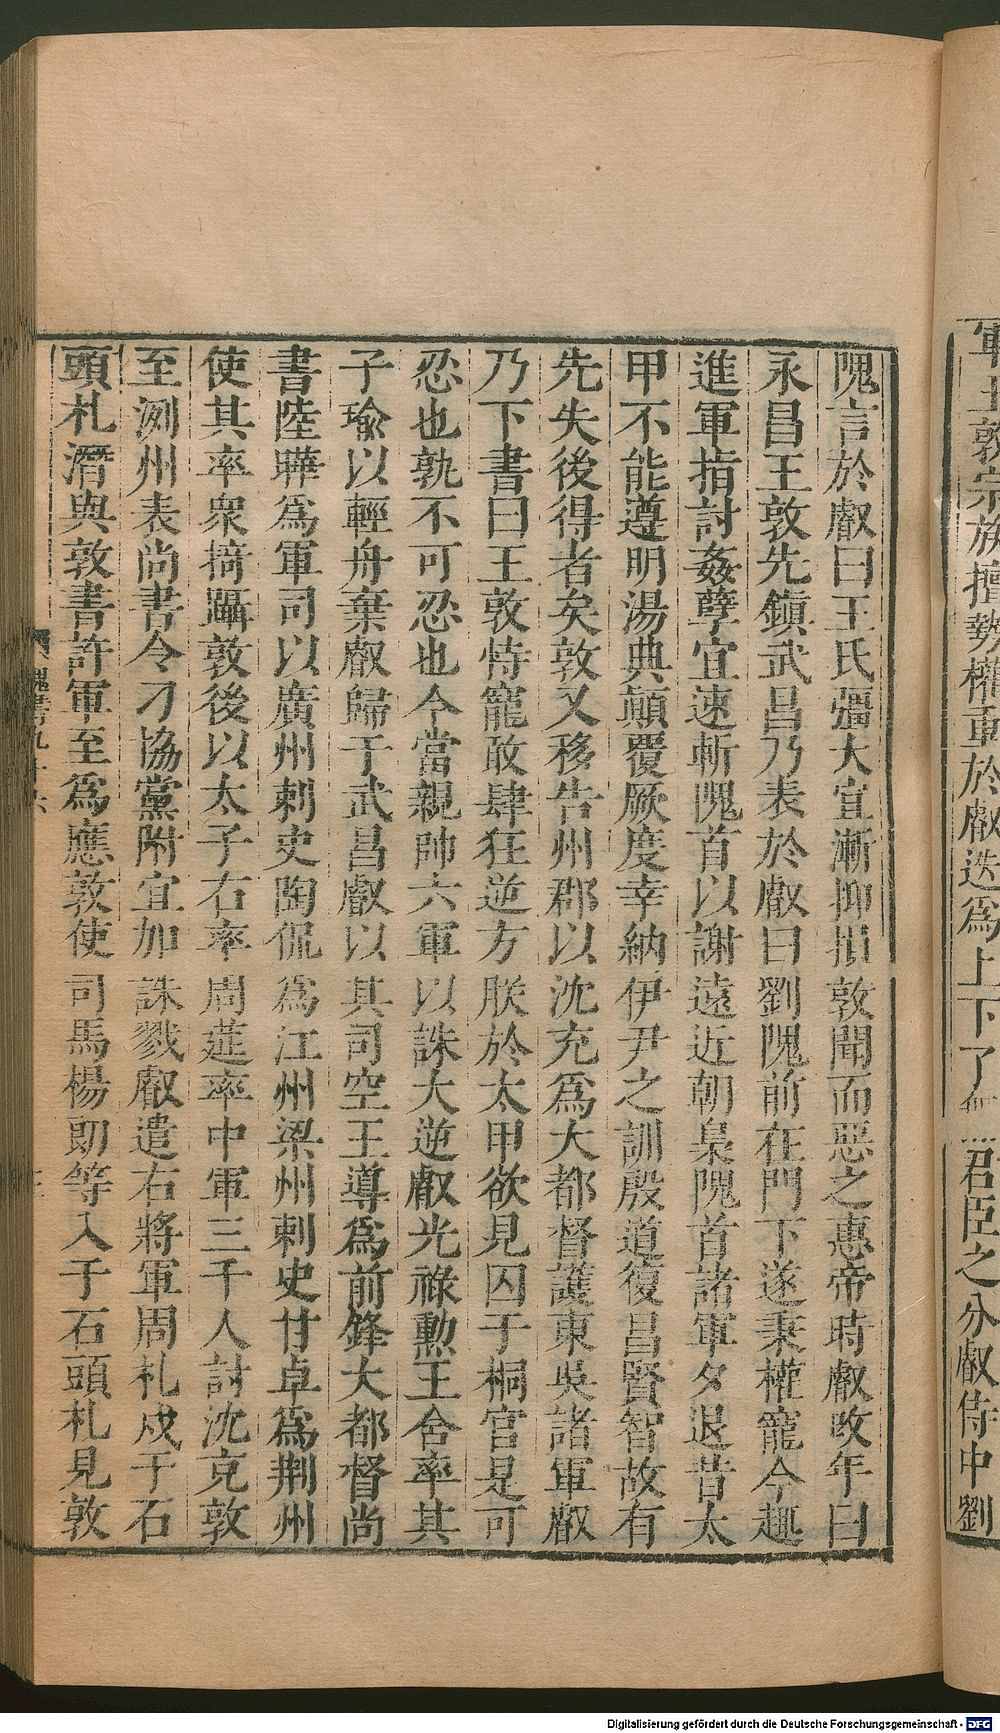 軍王敦宗族擅勢權重於叡迭爲上下了
君臣之分叡侍中劉
隗言於叡曰王氏彊大宜漸抑損敦聞而惡之惠帝時叡改年曰
永昌王敦先鎭武昌乃表於叡曰劉隗前在門下遂秉權寵今趣
進軍指討姦孽宜速斬隗首以謝遠近朝梟隗首諸軍夕退昔太
甲不能遵明湯典顚覆厥度幸納伊尹之訓殷道復昌賢智故有
先失後得者矣敦又移告州郡以沈充爲大都督護東吳諸軍叡
乃下書曰王敦恃寵敢肆狂逆方朕於太甲欲見囚于桐宮是可
忍也孰不可忍也今當親帥六軍以誅大逆叡光祿勲王含率其
子瑜以輕舟棄叡歸于武昌叡以其司空王導爲前鋒大都督尚
書陸曄爲軍司以廣州刺史陶侃爲江州梁州刺史甘卓爲荆州
使其率衆掎躡敦後以太子右率周莚率中軍三千人討沈充敦
至洌州表尚書令刁協黨附宜加誅戮叡遣右將軍周札戍于石
頭札潛與敦書許軍至爲應敦使司馬楊朗等入于石頭札見敦
魏書九十六